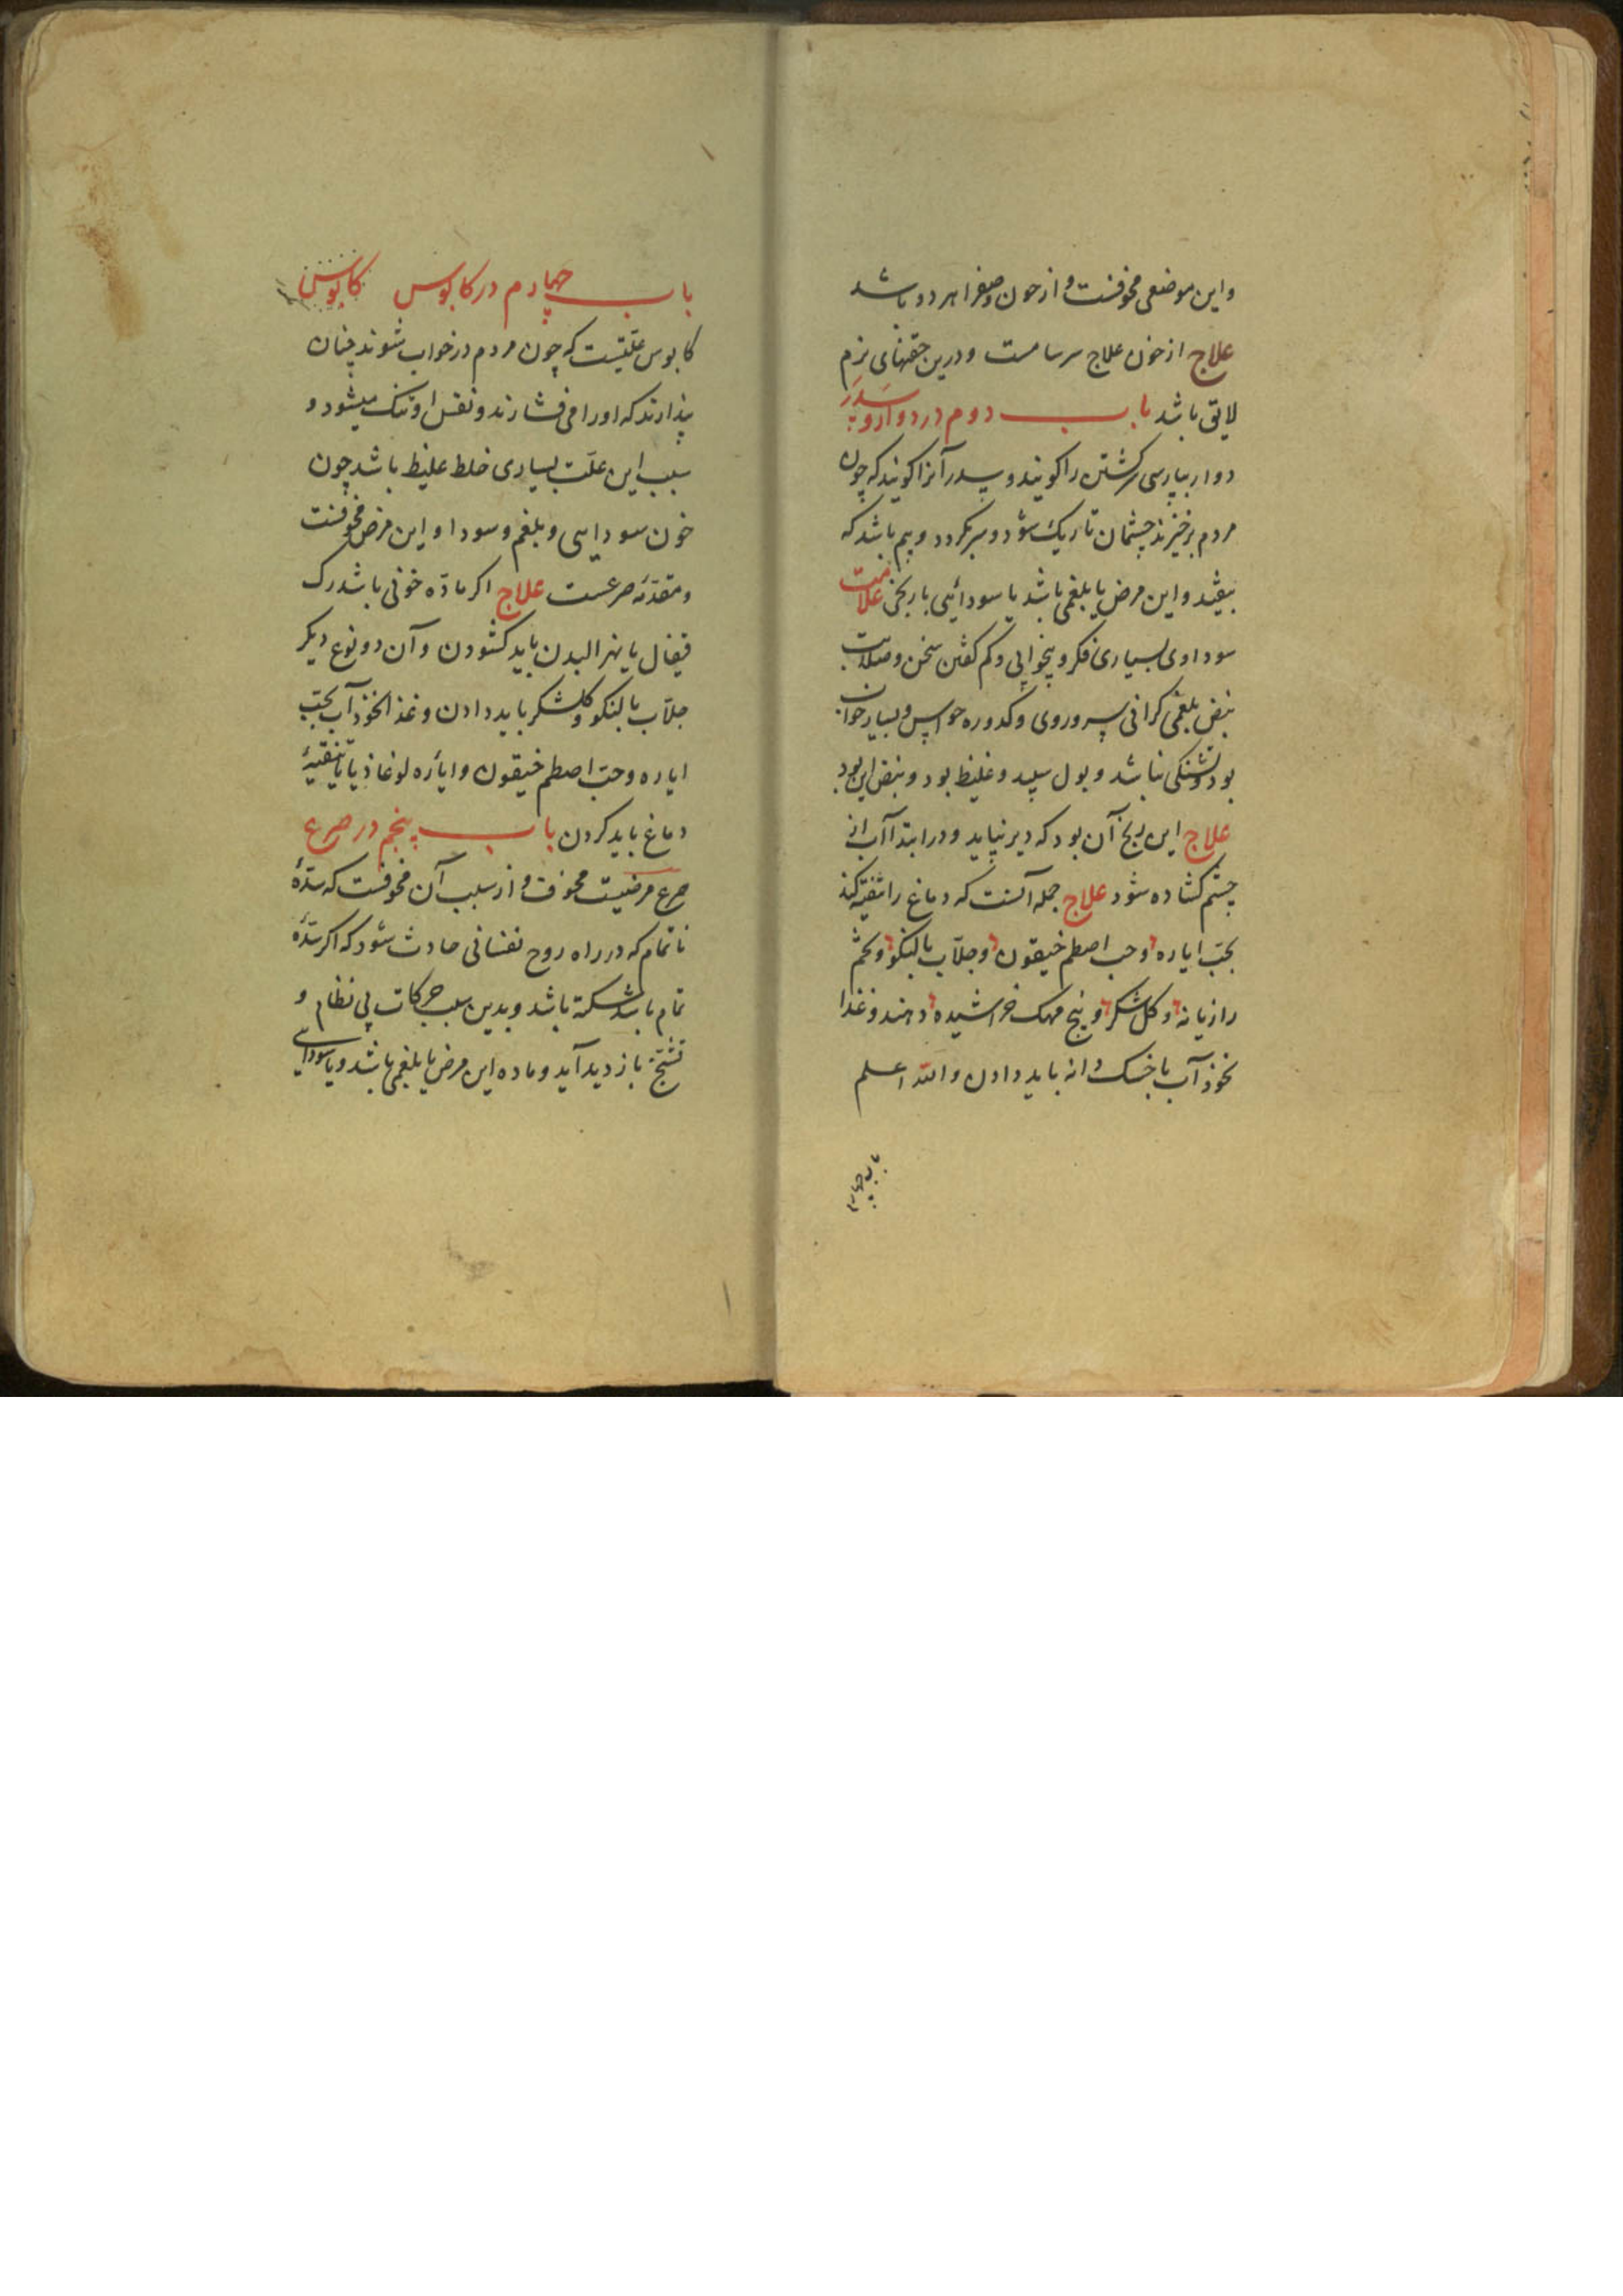 واین موضعی مخوفست و از خون و صفرا هر دو باشد
علاج از خون علاج سرسامست و درین حقنهای نرم
لایق باشد باب دوم در دوار و سدر
دوار بپارسی سرکشتن را کویند و سدر آنرا کویند که چون
مردم برخیزند چشمان تاریک شود و سر بکردد و بیم باشد که
بیفتد و این مرض یا بلغمی باشد یا سودائی یا ریحی علامت
سوداوی بسیاری فکر و بیخوابی و کم کفتن سخن و صلابت
نبض بلغمی کرانی سر و روی و کدوره حواس و بسیار خواب
بود و تشنکی نباشد و بول سپید و غلیظ بود و نبض لین بود
علاج این ریح آن بود که دیر نپاید و در ابتدا آب از
چشم کشاده شود علاج جمله آنست که دماغ را تنقیه کند
بحب ایاره و حب اصطمخیقون و جلاب بالنکو و تخم
رازیانه و کلشکر و بیخ مهک خراشیده دهند و غذا
نخوذآب با خسک دانه باید دادن و الله اعلم
باب چهارم
باب چهارم در کابوس کابوس
کابوس علتیست که چون مردم در خواب شوند چنان
پندارند که او را می فشارند و نفس او تنک میشود و
سبب این علت بسیاری خلط غلیظ باشد چون
خون سودایی و بلغم و سودا و این مرض مخوفست
و مقدمه صرعست علاج اکر ماده خونی باشد رک
قیفال یا نهر البدن باید کشودن و آن دو نوع دیکر
جلاب بالنکو و کلشکر باید دادن و غذا نخوذآب بحب
ایاره و حب اصطمخیقون و ایاره لوغاذیا تنقیهٔ
دماغ باید کردن باب پنجم در صرع
صرع مرضیست مخوف و از سبب آن مخوفست که سدهٔ
ناتمام که در راه روح نفسانی حادث شود که اکر سدهٔ
تمام باشد سکته باشد و بدین سبب حرکات بی نظام و
تشنج بازدید آید و ماده این مرض یا بلغمی باشد و یا سودایی